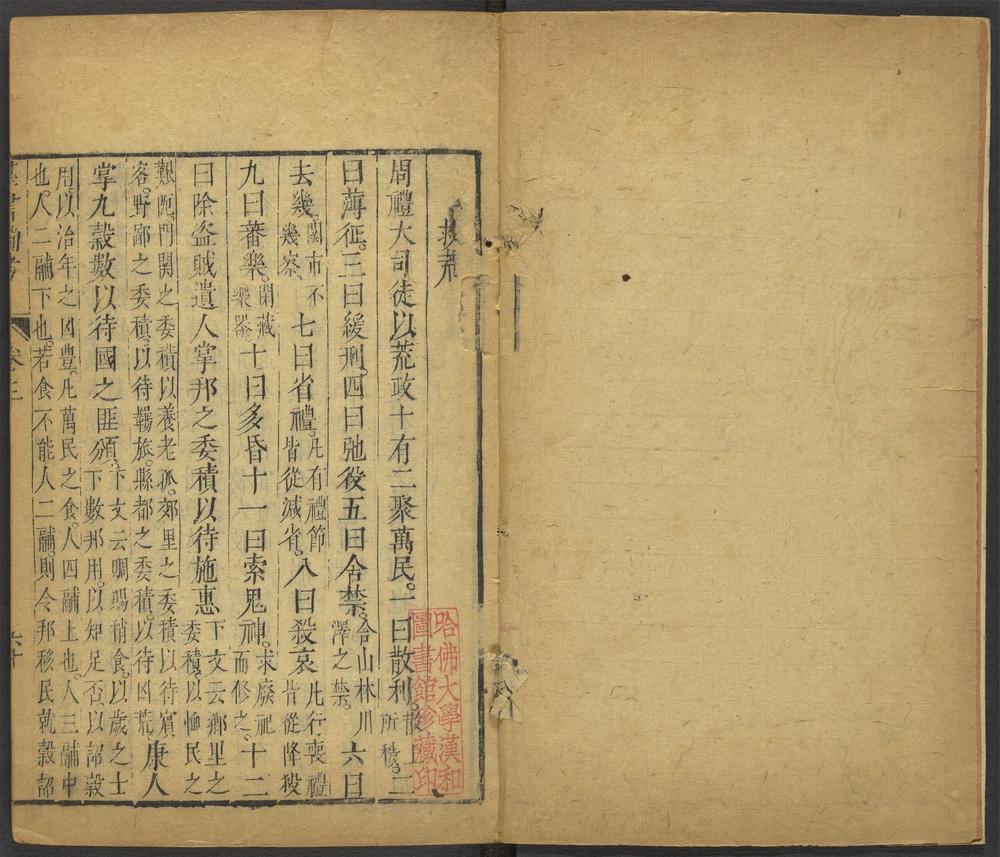 救荒
周禮大司徒以荒政十有二聚萬民。一曰散利。上所積。二
曰薄征。三曰緩刑。四曰弛役五曰舍禁。舍山林川澤之禁。六曰
去幾關市不幾察、七曰省禮。凡有禮節皆從減省。八曰殺哀凡行喪禮皆從降殺
九曰蕃樂。閉藏樂器。十曰多昏十一曰索鬼神。求廢祀而修之。十二
曰除盜賊遺人掌邦之委積以待施惠下文云鄉里之委積。以恤民之
艱阨。門關之委積以養老孤。郊里之委積以待賓客。野鄙之委積以待羇旅。縣都之委積。以待凶荒。廩人
掌九穀數以待國之匪頒、下文云賙賜稍食。以歲之士下數邦用。以知足否以詔穀
用。以治年之凶豐。凡萬民之食。人四鬴上也。人三鬴中也。人二鬴下也。若食不能人二鬴。則令邦移民就穀詔
卷三
六十
哈佛大學漢和
圖書館珍藏印